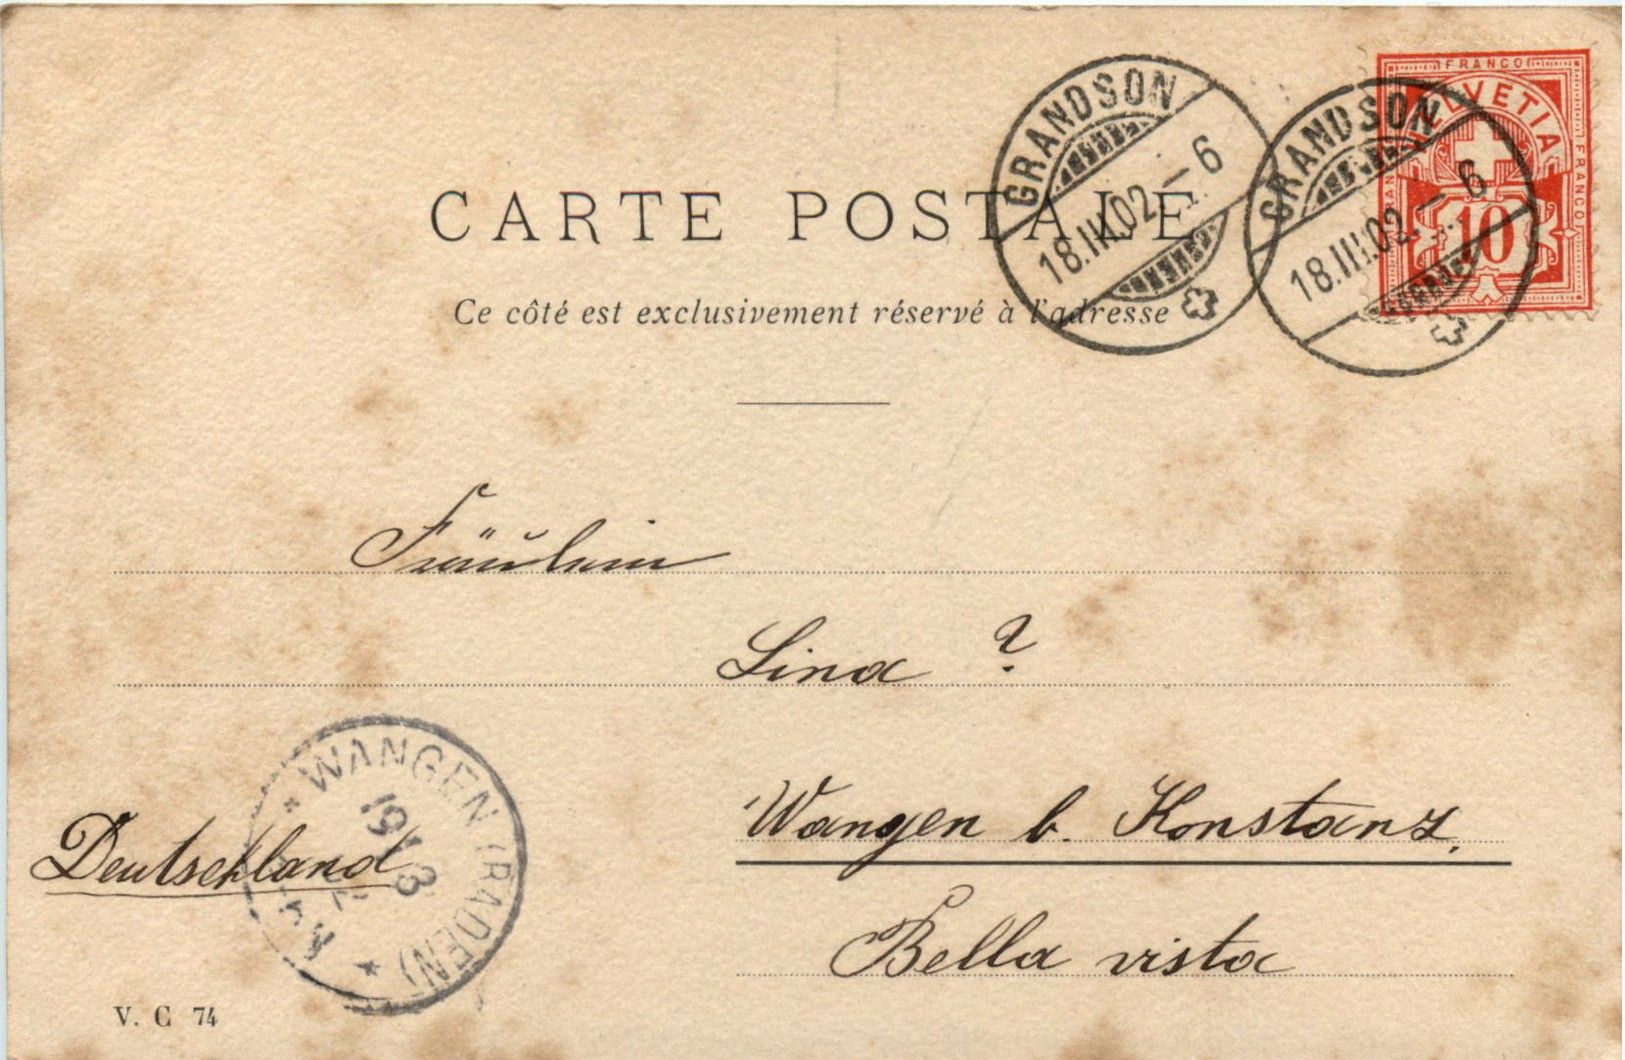 FRANCO
HELVETIA
FRANCO
10
GRANDSON
18.III.02.–6
GRANDSON
18.III.02.–6
CARTE POSTALE
Ce côté est exclusivement réservé à l'adresse
Fräulein
Lina ?
Wangen b. Konstanz.
Deutschland
WANGEN (BADEN)
19 3
Bella vista
V. C 74